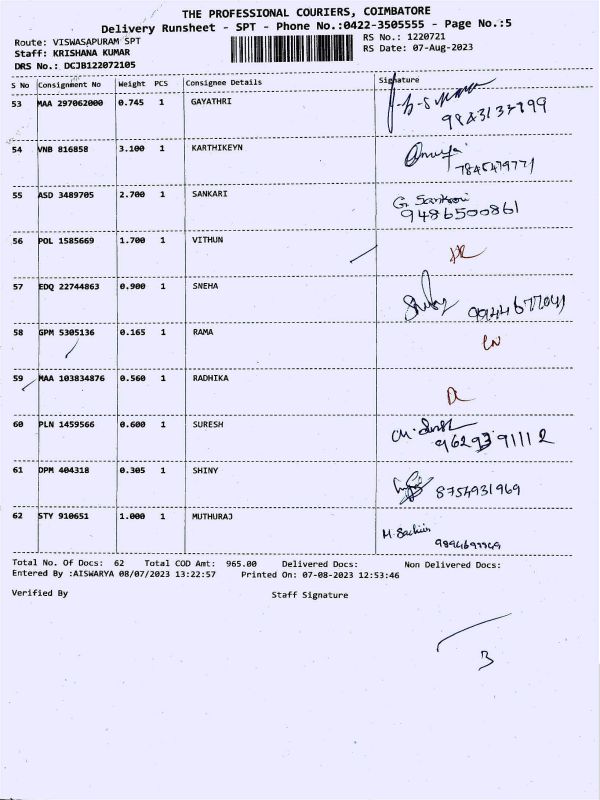 THE PROFESSIONAL COURIERS, COIMBATORE
Delivery Runsheet - SPT - Phone No.:0422-3505555 - Page No.:5
Route: VISWASAPURAM SPT RS No.: 1220721
Staff: KRISHANA KUMAR RS Date: 07-Aug-2023
DRS No.: DCJB122072105
S No Consignment No Weight PCS Consignee Details Signature
53 MAA 297062000 0.745 1 GAYATHRI
54 VNB 816858 3.100 1 KARTHIKEYN
7845479771
55 ASD 3489705 2.700 1 SANKARI G. Sankari
9486500861
56 POL 1585669 1.700 1 VITHUN
57 EDQ 22744863 0.900 1 SNEHA
58 GPM 5305136 0.165 1 RAMA
59 MAA 103834876 0.560 1 RADHIKA
60 PLN 1459566 0.600 1 SURESH
9629391112
61 DPM 404318 0.305 1 SHINY 8754931969
62 STY 910651 1.000 1 MUTHURAJ
Total No. Of Docs: 62 Total COD Amt: 965.00 Delivered Docs: Non Delivered Docs:
Entered By :AISWARYA 08/07/2023 13:22:57 Printed On: 07-08-2023 12:53:46
Verified By Staff Signature
3